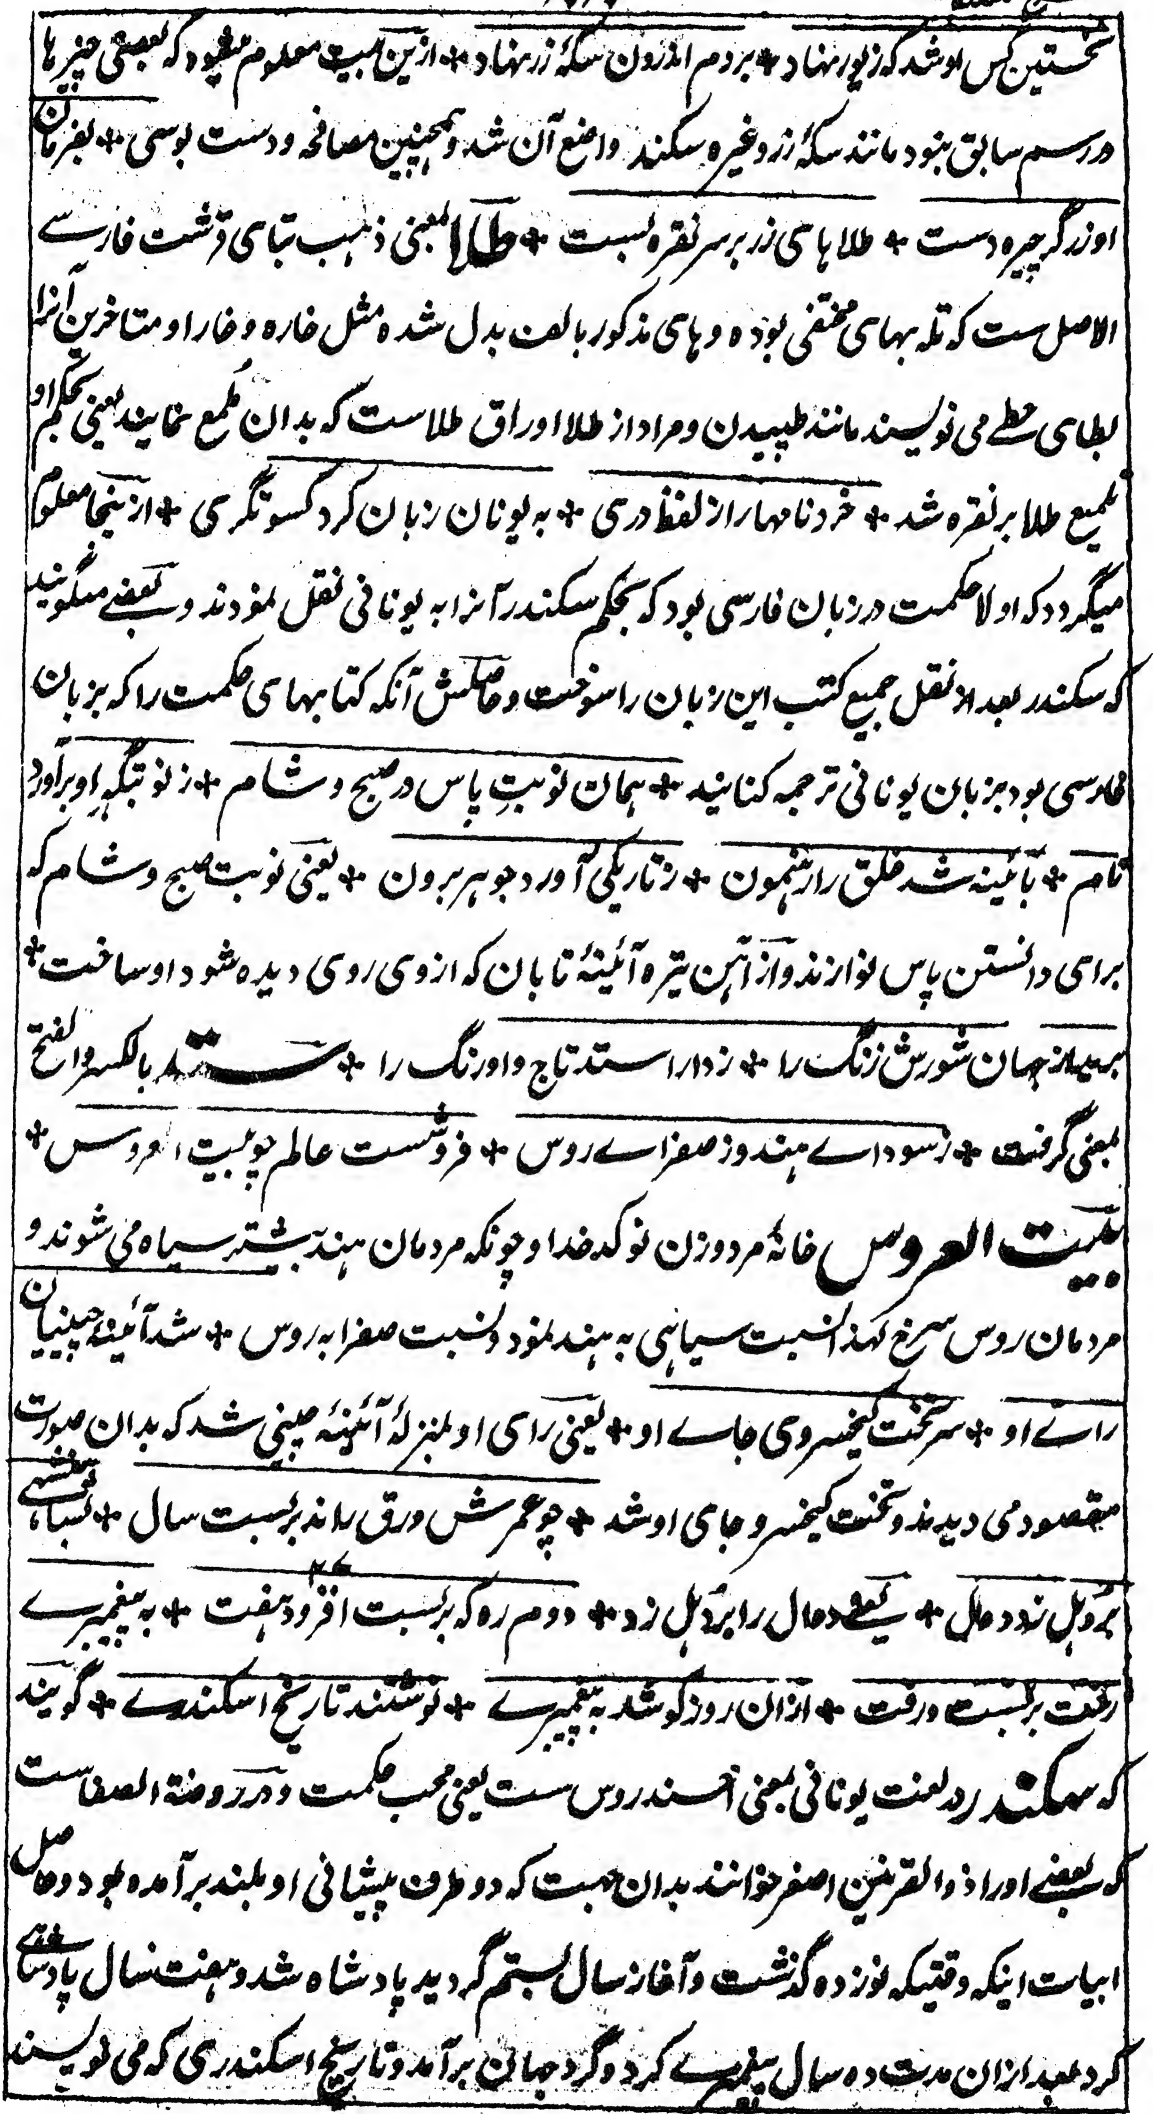 نخستین کس او شد که زیور نهاد * بروم اندرون سکهٔ زر نهاد * ازین بیت معلوم میشود که بعضی چیزها
در رسم سابق نبود مانند سکهٔ زر و غیره سکندر واضع آن شد و همچنین مصافحه و دست بوسی * بفرمان
او زرگر چیره دست * طلاهای زر بر سر نقره بست * طلا بمعنی ذهب بتای قرشت فارسے
الاصل ست که تله بهای مختفی بوده و های مذکور بالف بدل شده مثل خاره و خارا و متاخرین آنرا
بطای حطے می نویسند مانند طپیدن و مراد از طلا اوراق طلاست که بدان ملمع نمایند یعنی بحکم او
تلمیع طلا بر نقره شد * خرد نامها را ز لفظ دری * به یونان زبان کرد کسوتگری * از ینجا معلوم
میگردد که اولا حکمت در زبان فارسی بود که بحکم سکندر آنرا به یونانی نقل نمودند و بعضے میگویند
که سکندر بعد از نقل جمیع کتب این زبان را سوخت و حاصلش آنکه کتابهای حکمت را که بزبان
فارسی بود بزبان یونانی ترجمه کنانید * همان نوبتِ پاس در صبح و شام * ز نوبتگهِ او برآورد
نام * بآئینه شد خلق را رهنمون * ز تاریکی آورد جوهر برون * یعنی نوبت صبح و شام که
برای دانستن پاس نوازند و از آهن تیره آئینهٔ تابان که ازوی روی دیده شود او ساخت *
برید از جهان شورش زنگ را * ز دارا ستد تاج و اورنگ را * ستد بالکسر و الفتح
بمعنی گرفت * ز سودای هند و ز صفرای روس * فروشست عالم چو بیت العروس *
بیت العروس خانهٔ مرد و زن نو کدخدا و چونکه مردمان هند بیشتر سیاه می شوند و
مردمان روس سرخ لهذا نسبت سیاهی به هند نمود و نسبت صفرا به روس * شد آئینهٔ چینیان
رای او * سر تخت کیخسروی جاے او * یعنی رای او بمنزلهٔ آئینهٔ چینی شد که بدان صورت
مقصود می دیدند و تخت کیخسرو جای او شد * چو عمرش ورق راند بر بست سال * بشاهنشهی
بر دهل زد دوال * یعنے دوال را بر دهل زد * دوم ره که بر بست افزود هفت ۲۷ * به پیغمبرے
رخت بر بست و رفت * ازان روز کو شد به پیغمبرے * نوشتند تاریخ اسکندرے * گویند
که سکندر در لغت یونانی بمعنی اخسندروس ست یعنی محب حکمت و در روضة الصفاست
که بعضے او را ذوالقرنین اصغر خوانند بدان جهت که دو طرف پیشانی او بلند برآمده بود و حاصل
ابیات اینکه وقتیکه نوزده گذشت و آغاز سال بستم گردید پادشاه شد و هفت سال پادشاهی
کرد بعد ازان مدت ده سال پیغمبرے کرد و گرد جهان برآمد و تاریخ اسکندری که می نویسند